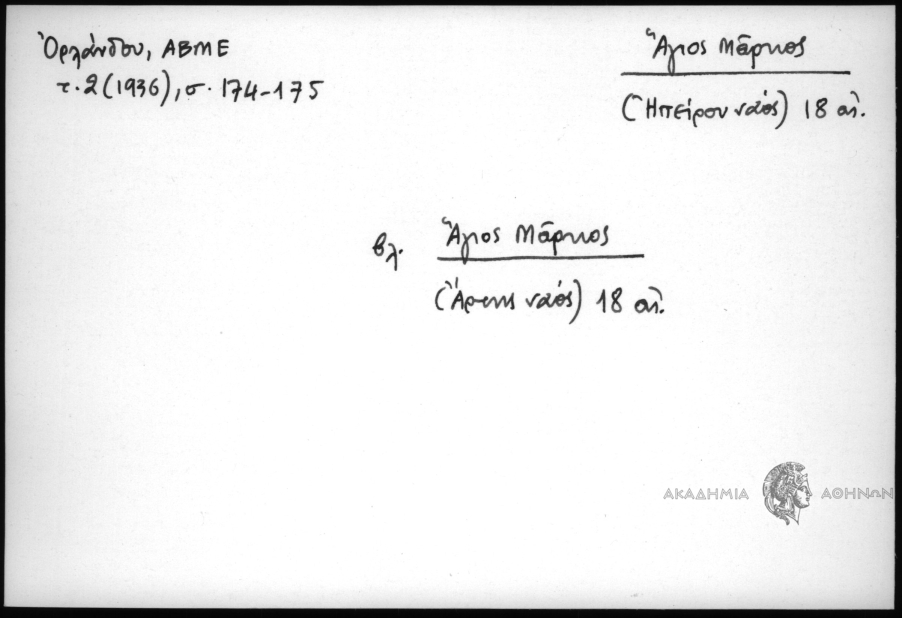 Ὀρλάνδου, ΑΒΜΕ
τ. 2 (1936), σ. 174-175
Ἅγιος Μᾶρκος
(Ἠπείρου ναός) 18 αἰ.
βλ. Ἅγιος Μᾶρκος
(Ἄρτης ναός) 18 αἰ.
ΑΚΑΔΗΜΙΑ ΑΘΗΝΩΝ